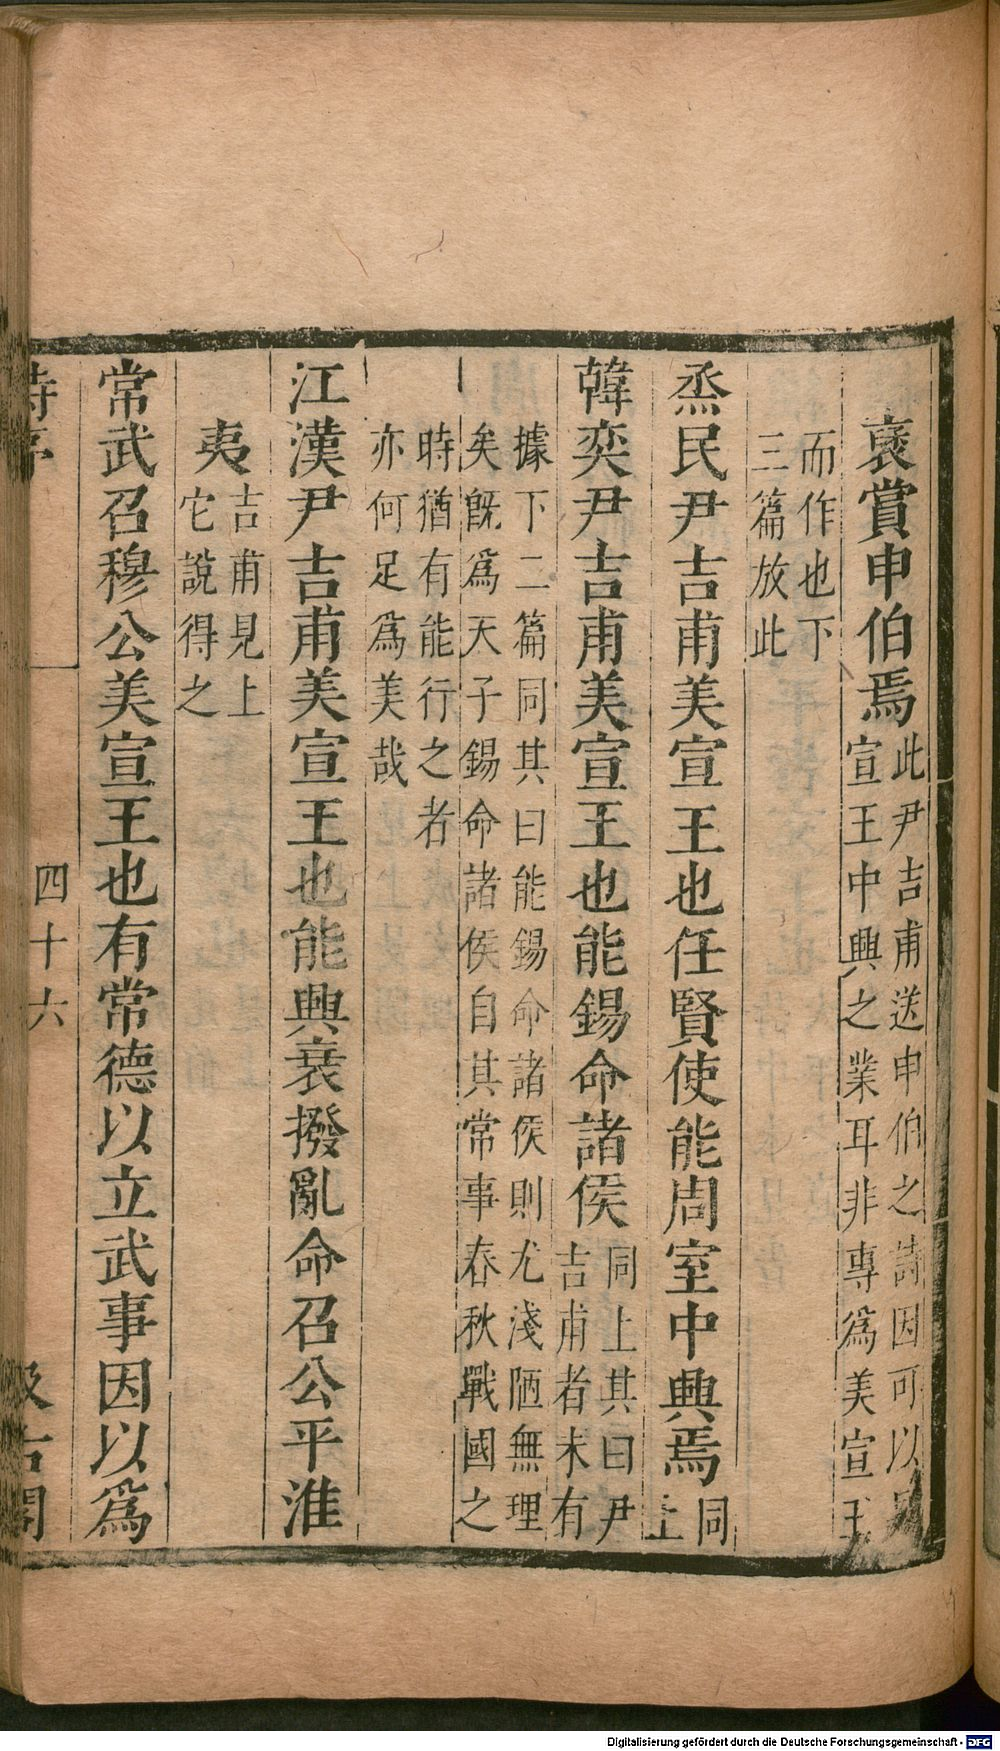 襃賞申伯焉此尹吉甫送申伯之詩因可以見
宣王中興之業耳非專爲美宣王
而作也下
三篇放此
烝民尹吉甫美宣王也任賢使能周室中興焉同
上
韓奕尹吉甫美宣王也能錫命諸侯同上其曰尹
吉甫者未有
據下二篇同其曰能錫命諸侯則尤淺陋無理
矣旣爲天子錫命諸侯自其常事春秋戰國之
時猶有能行之者
亦何足爲美哉
江漢尹吉甫美宣王也能興衰撥亂命召公平淮
夷吉甫見上
它說得之
常武召穆公美宣王也有常德以立武事因以爲
詩序
四十六
汲古閣
Digitalisierung gefördert durch die Deutsche Forschungsgemeinschaft - DFG